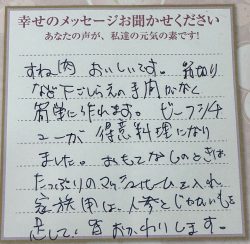 幸せのメッセージお聞かせください
あなたの声が、私達の元気の素です!
すね肉 おいしいです。 筋切り
など下ごしらえの手間がなく
簡単に作れます。 ビーフシチ
ューが 得意料理になり
ました。 おもてなしのときは
たっぷりのマッシュポテトを入れ
家族用は、人参とじゃがいもを
足して、皆おかわりします。